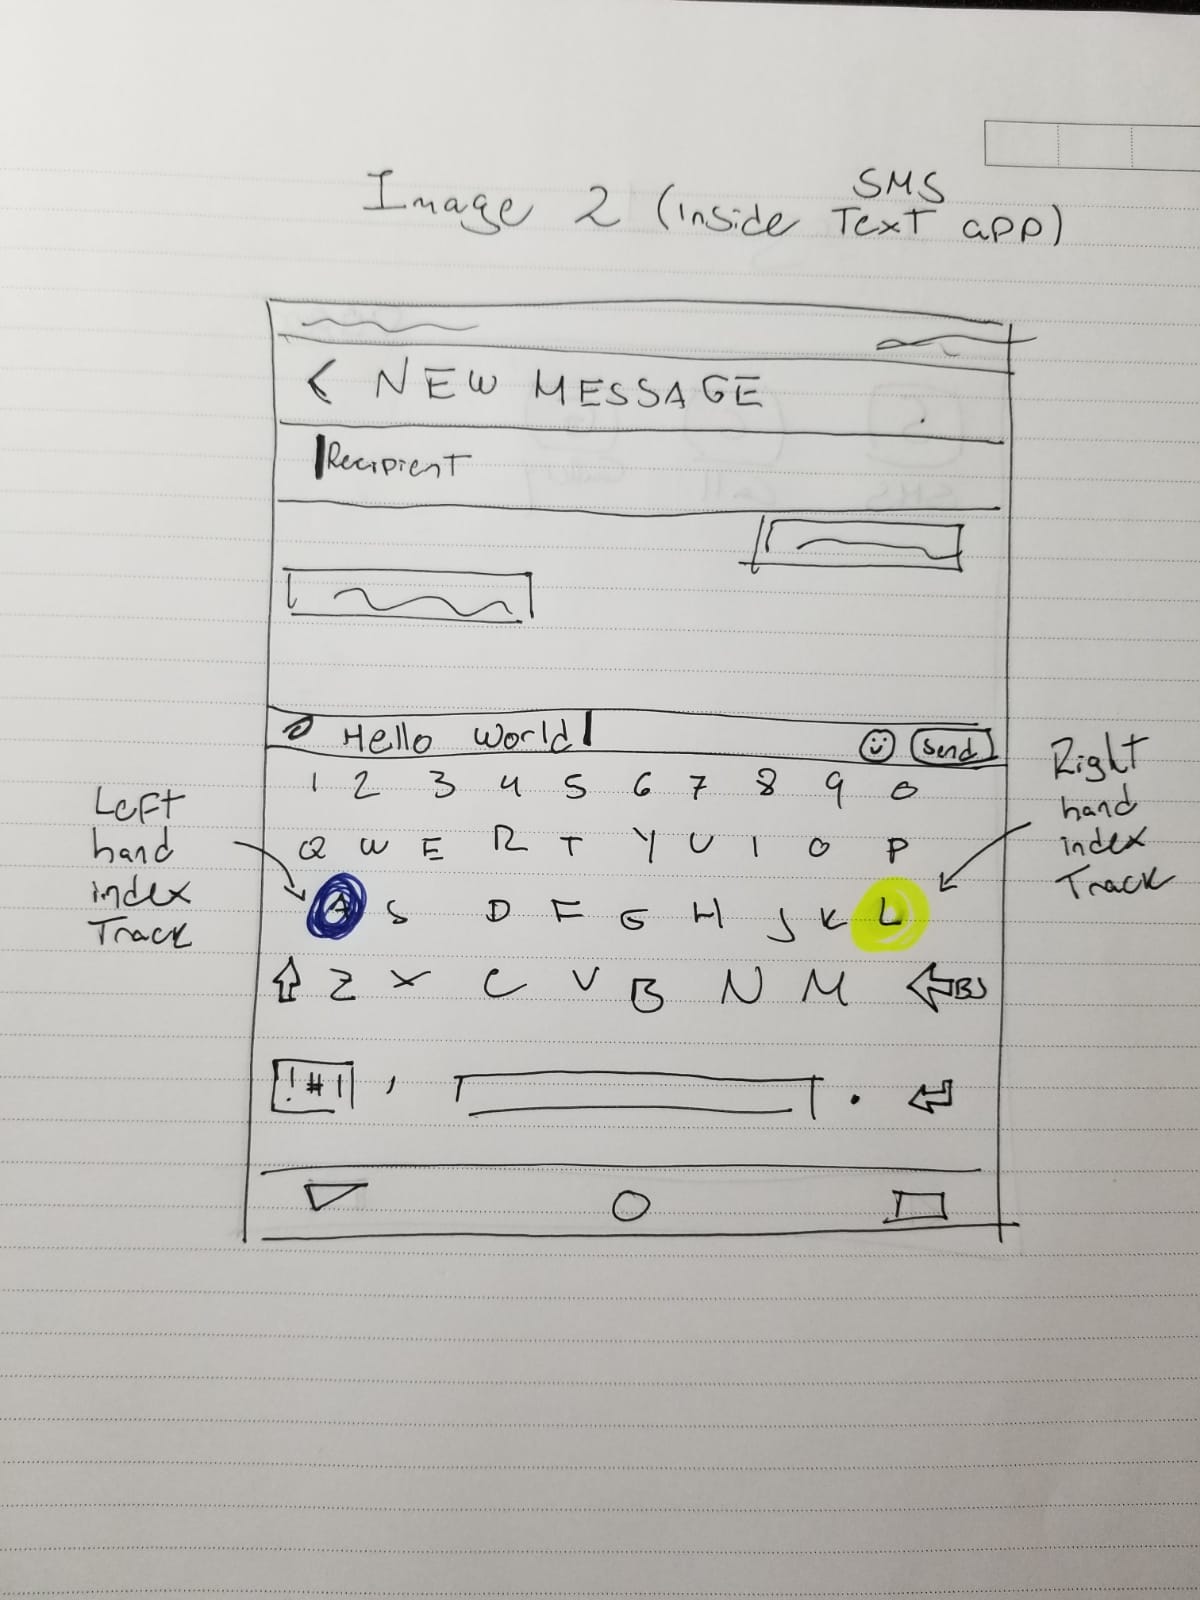 Image 2 (inside SMS Text app)
< NEW MESSAGE
Recipient
Hello World
Send
1 2 3 4 5 6 7 8 9 0
Q W E R T Y U I O P
A S D F G H J K L
Z X C V B N M
BS
!#1 , .
Left
hand
index
Track
Right
hand
index
Track